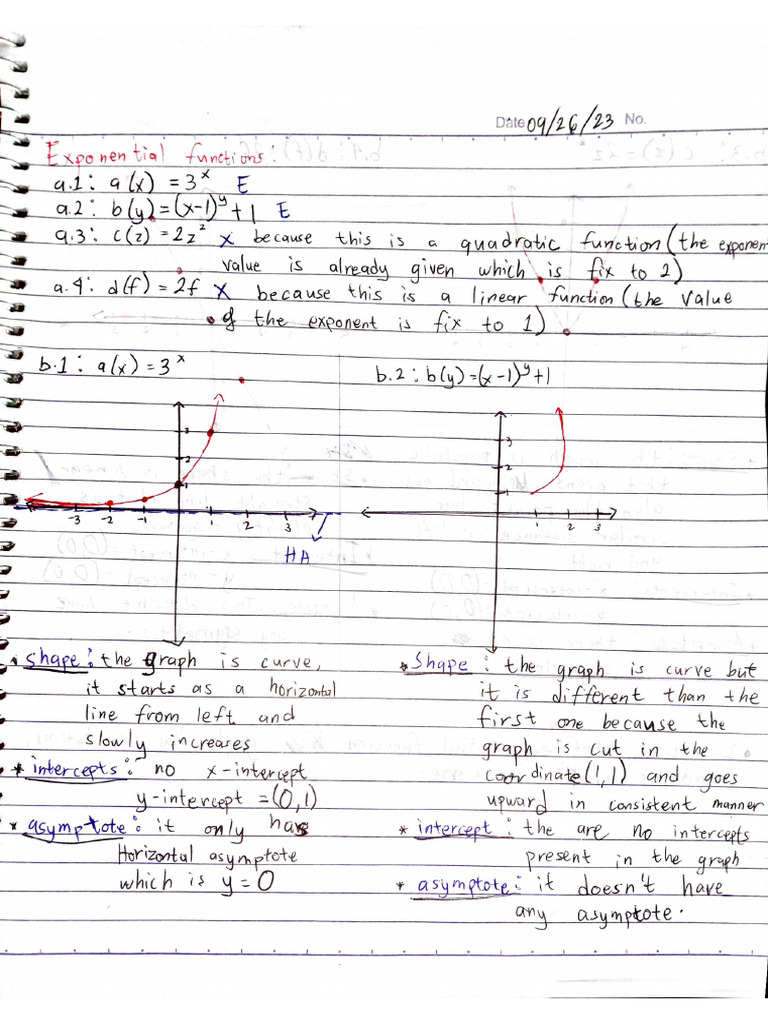 Date 09/26/23 No.
Exponential functions:
a.1: a(x) = 3^x E
a.2: b(y) = (x-1)^y + 1 E
a.3: c(z) = 2z^2 x because this is a quadratic function (the exponen
value is already given which is fix to 2)
a.4: d(f) = 2f x because this is a linear function (the value
of the exponent is fix to 1)
b.1: a(x) = 3^x
b.2: b(y) = (x-1)^y + 1
3
2
1
-3 -2 -1 1 2 3
HA
3
2
1
1 2 3
* shape: the graph is curve,
it starts as a horizontal
line from left and
slowly increases
* intercepts: no x-intercept
y-intercept = (0,1)
* asymptote: it only has
Horizontal asymptote
which is y = 0
* Shape: the graph is curve but
it is different than the
first one because the
graph is cut in the
coordinate (1,1) and goes
upward in consistent manner
* intercept: the are no intercepts
present in the graph
* asymptote: it doesn't have
any asymptote.